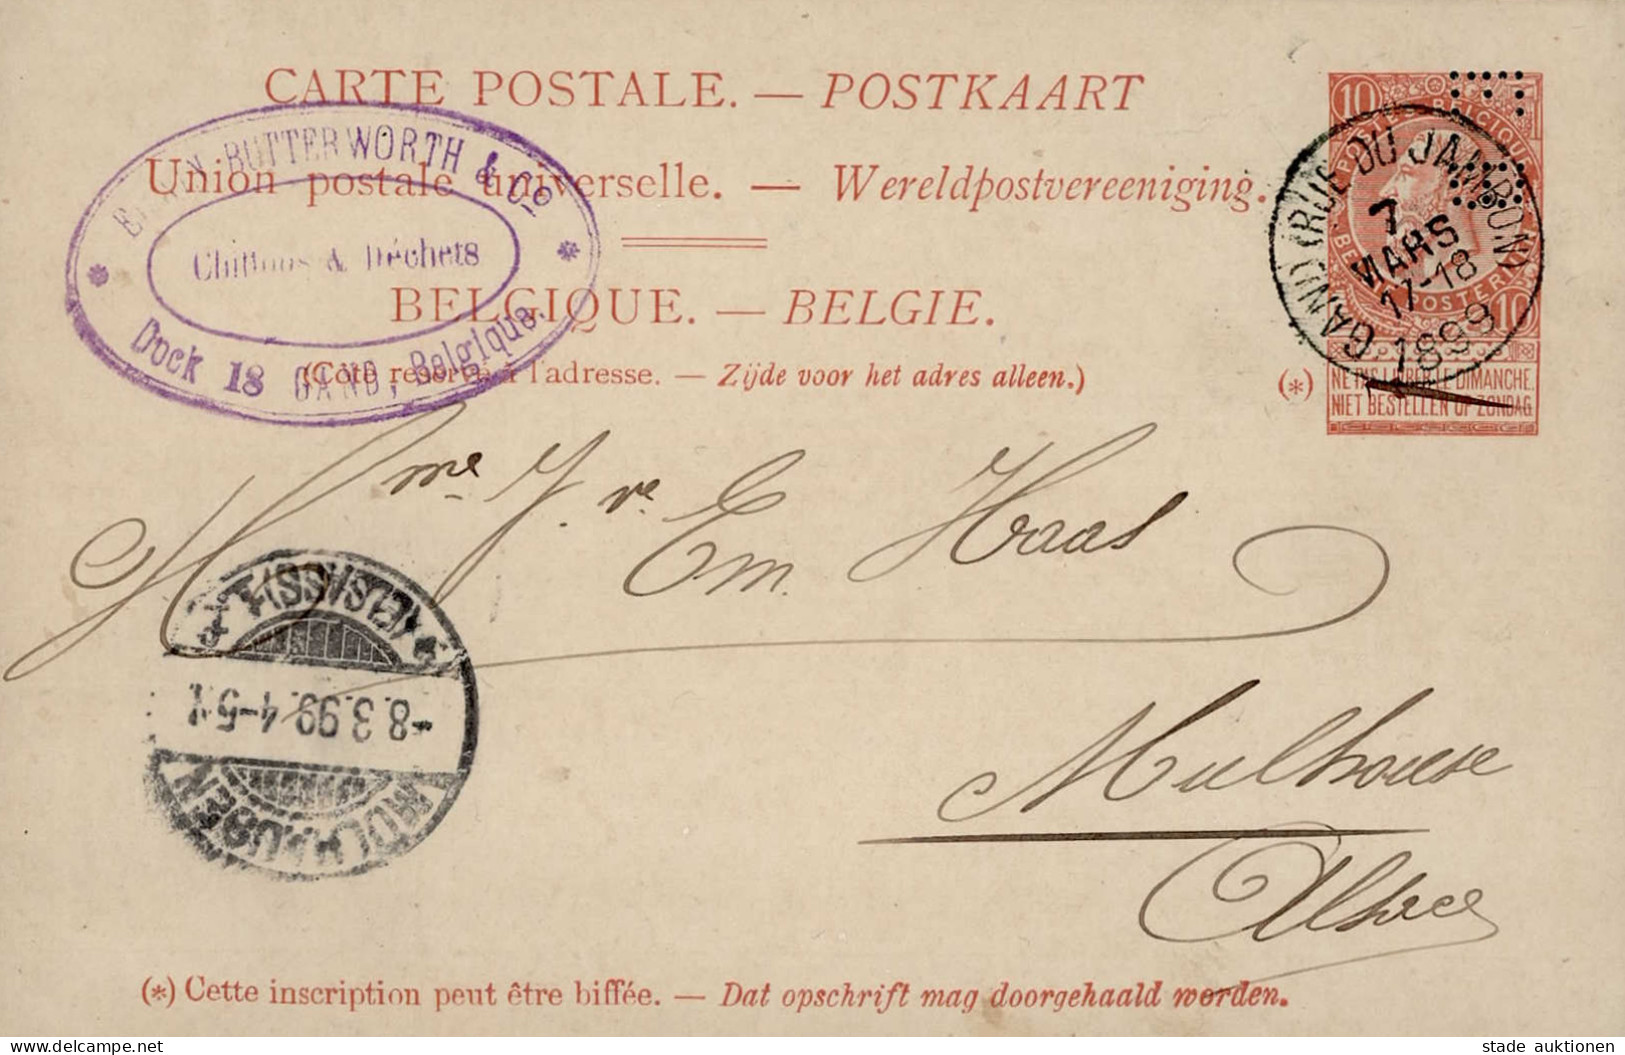 CARTE POSTALE. — POSTKAART
Union postale universelle. — Wereldpostvereeniging.
BELGIQUE. — BELGIE.
(Côté réservé à l'adresse. — Zijde voor het adres alleen.)
BUTTERWORTH & Co
Chiffons & Déchets
Dock 18 GAND, Belgique.
10 10
POSTES BELGIQUE
BELGIE POSTERIJEN
10 10
(*) NE PAS LIVRER LE DIMANCHE.
NIET BESTELLEN OP ZONDAG.
GAND (RUE DU JAMBON)
7
MARS
17-18
1899
Mme J. ve Em. Haas
Mulhouse
Alsace
MÜLHAUSEN
-8.3.99. 4-5 N.
(ELSASS) 1
(*) Cette inscription peut être biffée. — Dat opschrift mag doorgehaald worden.
www.delcampe.net
stade auktionen